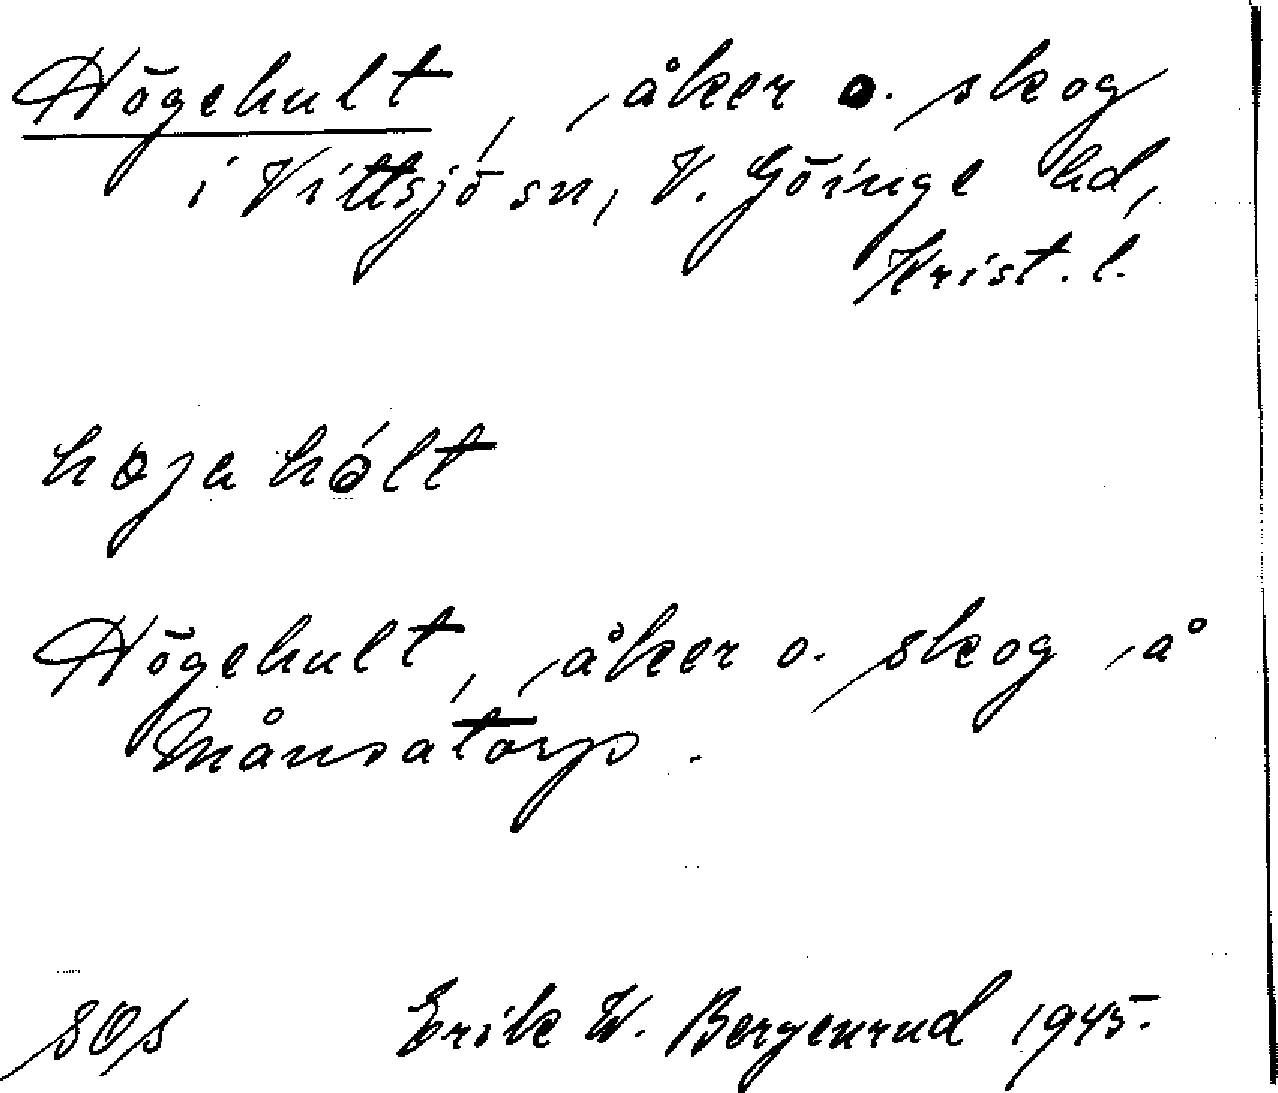 Högehult, åker o. skog
i Vittsjö sn, V. Göinge hd,
Krist. l.
Högehult, åker o. skog å
Månsatorp.
Erik W. Bergenrud 1945.